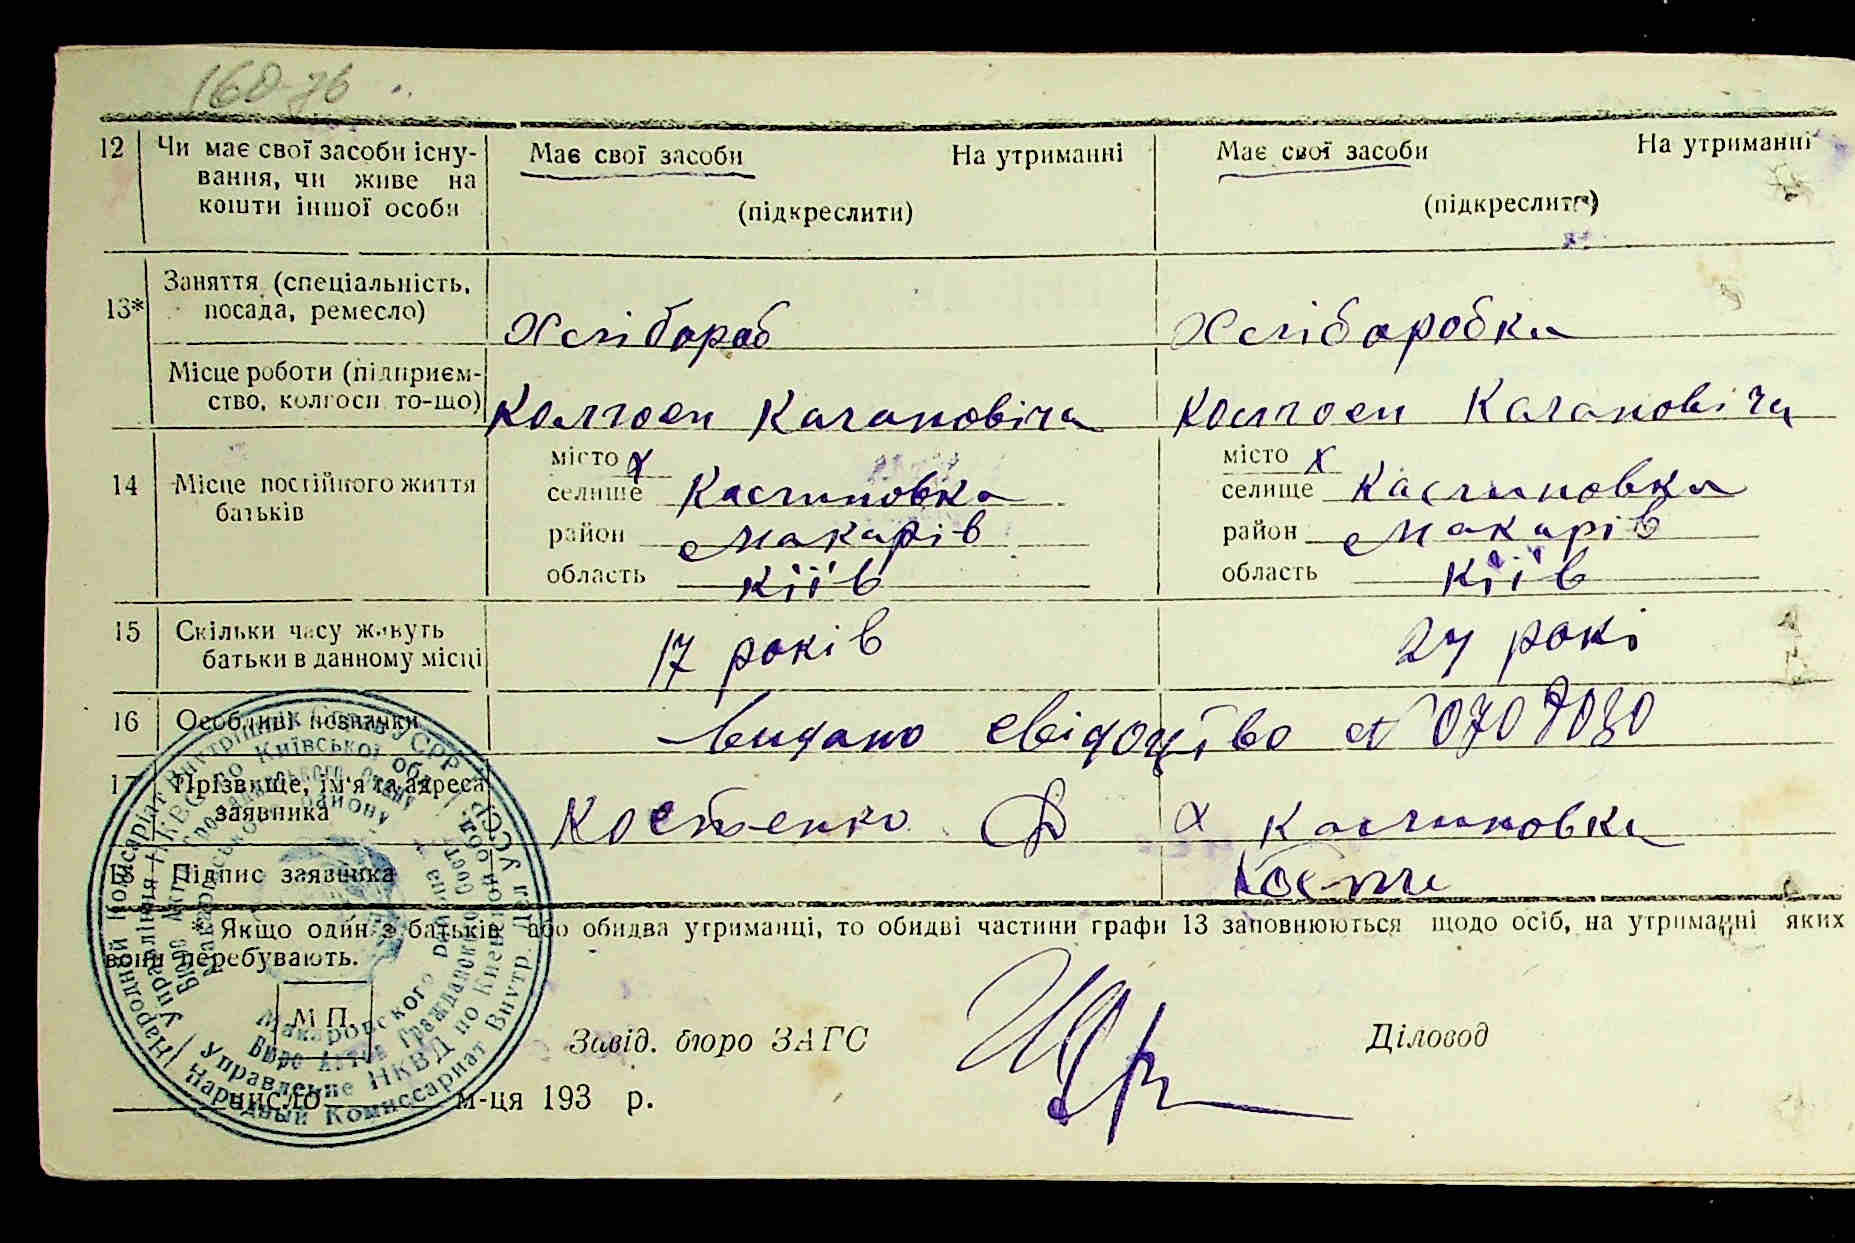 160 зв
12 Чи має свої засоби існу- Має свої засоби На утриманні Має свої засоби На утриманні
вання, чи живе на
кошти іншої особи (підкреслити) (підкреслити)
13* Заняття (спеціальність,
посада, ремесло) Хлібороб Хліборобка
Місце роботи (підприєм-
ство, колгосп то-що) Колгосп Кагановіча Колгосп Кагановіча
місто х місто х
14 Місце постійного життя селище Калиновка селище Калиновка
батьків район Макарів район Макарів
область Кіїв область Кіїв
15 Скільки часу живуть
батьки в данному місці 17 років 24 рокі
16 Особливі позначки видано свідоцтво №
17 Прізвище, ім'я та адреса
заявника Костенко Ф х Калиновка
Підпис заявника
* Якщо один з батьків або обидва утриманці, то обидві частини графи 13 заповнюються щодо осіб, на утриманні яких
вони перебувають.
М П.
Завід. бюро ЗАГС Діловод
число м-ця 193 р.
Народній Комісаріат Внутрішніх Справ УСРР
Управління НКВС по Київській обл.
Макаровского района
Бюро Актов Гражданского Сост.
Управление НКВД по Киевской обл.
Народный Комиссариат Внутр. Дел УССР